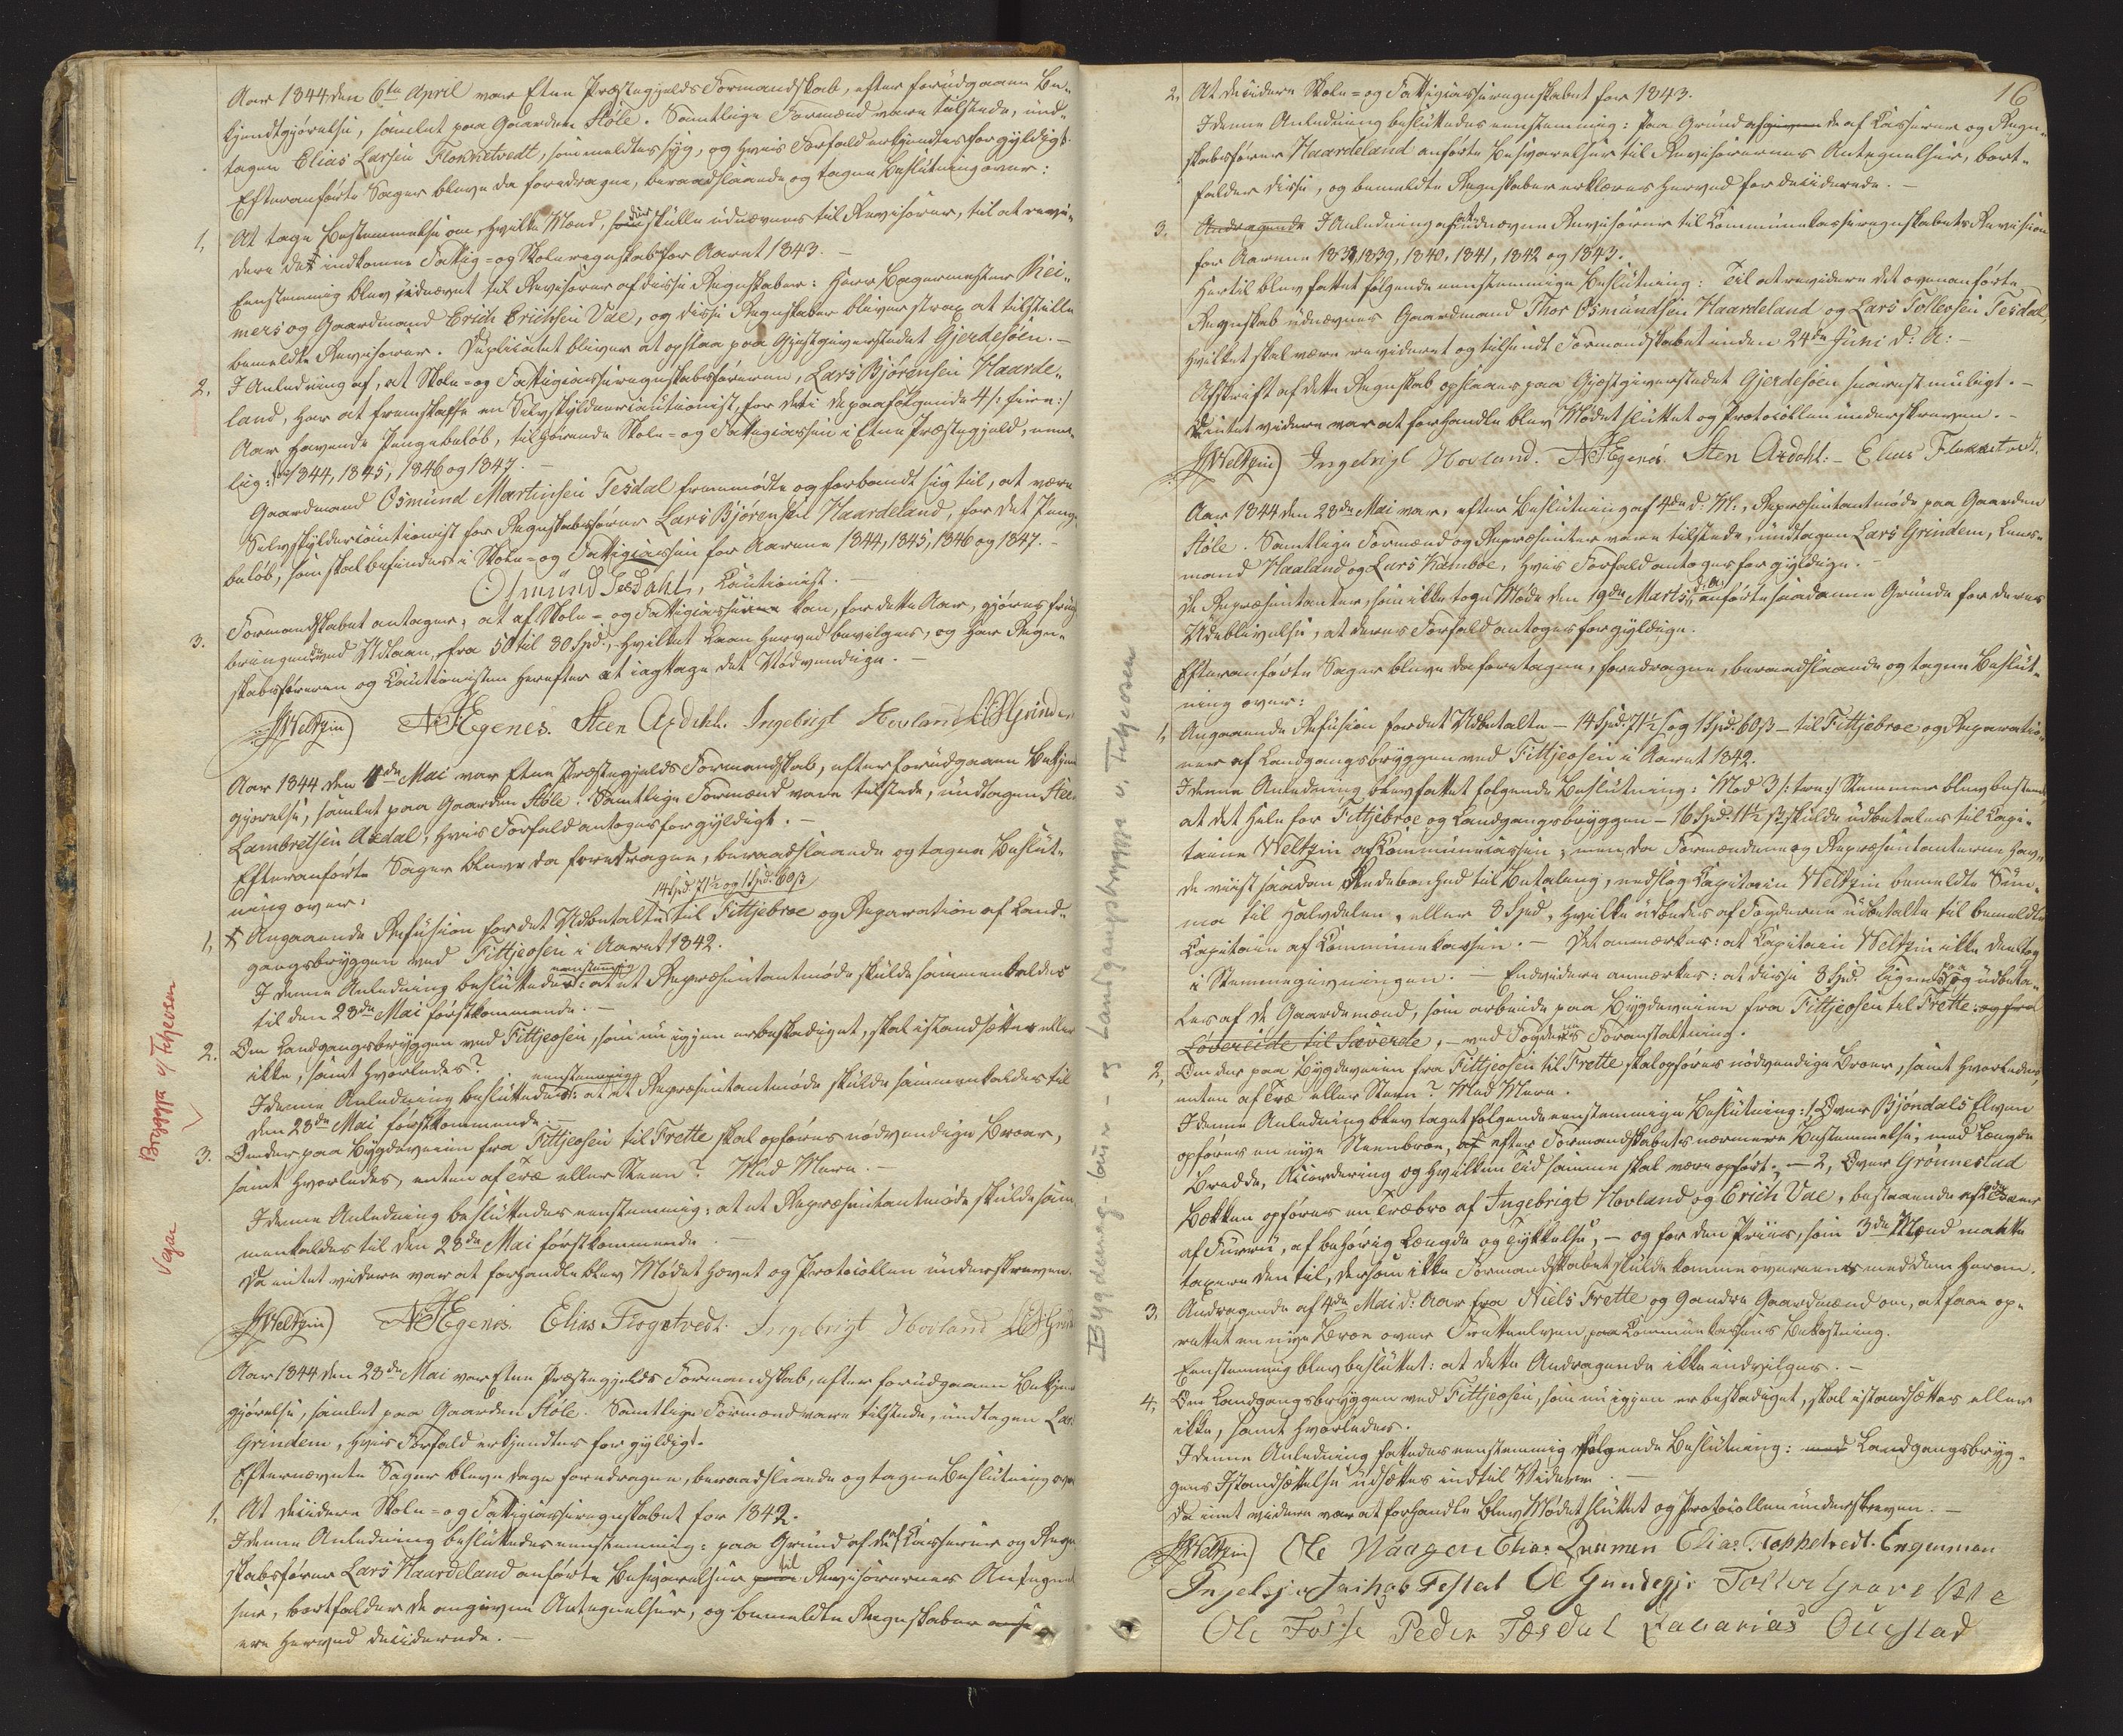 Aar 1844 den 6te April var Etne Præstegjelds Formandskab, efter forudgaaen Be-
kjendtgjørelse, samlet paa Gaarden Støle. Samtlige Formænd vare tilstede, und-
tagen Elias Larsen Flokketvedt, som meldtes syg, og hvis Forfald erkjendtes for gyldigt.
Efteranførte Sager bleve da foredragne, beraadslaaede og tagne Beslutning over:
1, At tage Bestemmelse om, hvilke Mænd, som der skulle udnævnes til Revisorer, til at revi-
dere det indkomne Fattig- og Skoleregnskab for Aaret 1843. -
Eenstemmig blev udnævnt til Revisorer af disse Regnskaber: Herr Bagermester Rei-
mers og Gaardmand Erich Erichsen Vae, og disse Regnskaber bliver strax at tilstille
bemeldte Revisorer. Duplicatet bliver at opslaa paa Gjestgiverstedet Gjerdesøen. -
2. I Anledning af, at Skole- og Fattigcasseregnskabsføreren, Lars Bjørensen Haarde-
land, har at fremskaffe en Selvskyldnercautionist, for det i de paafølgende 4 /: fire :/
Aar havende Pengebeløb, tilhørende Skole- og Fattigcassen i Etne Præstegjeld, nem-
lig: for 1844, 1845, 1846 og 1847. -
Gaardmand Osmund Martinsen Tesdal fremmødte og forbandt sig til, at være
Selvskyldercautionist for Regnskabsfører Lars Bjørensen Haardeland, for det Penge-
beløb, som skal befindes i Skole- og Fattigcassen for Aarene 1844, 1845, 1846 og 1847. -
Osmund Tesdahl, Cautionist. -
3. Formandskabet antager, at af Skole- og Fattigcassen kan, for dette Aar, gjøres frugt-
bringende ved Udlaan, fra 50 til 80 Spd., hvilket Laan herved bevilges, og har Regn-
skabsføreren og Cautionisten herefter at iagttage det Nødvendige. -
JWeltzin) NHEgenes. Steen Axdahl. Ingebrigt Hovland LHGrindem
Aar 1844 den 4de Mai var Etne Præstegjelds Formandskab, efter forudgaaen Bekjendt
gjørelse, samlet paa Gaarden Støle. Samtlige Formænd vare tilstede, undtagen Steen
Lambretsen Axdal, hvis Forfald antoges for gyldigt. -
Efteranførte Sager bleve da foredragne, beraadslaaede og tagne Beslut-
ning over:
14 Spd. 71½ og 1 Spd. 60 ß
1, Angaaende Refusion for det Udbetalte til Fittjebroe og Reparation af Land-
gangsbryggen ved Fittjeosen i Aaret 1842.
I denne Anledning besluttedes eenstemmig: at et Repræsentantmøde skulde sammenkaldes
til den 28de Mai førstkommende. -
2. Om Landgangsbryggen ved Fittjeosen, som nu igjen er beskadiget, skal istandsættes eller
ikke, samt hvorledes?
I denne Anledning besluttedes eenstemmig: at et Repræsentantmøde skulde sammenkaldes til
den 28de Mai førstkommende. -
3. Om der paa Bygdeveien fra Fittjeosen til Frette skal opføres nødvendige Broer,
samt hvorledes, enten af Træ eller Steen? Med Mere. -
I denne Anledning besluttedes eenstemmig: at et Repræsentantmøde skulde sam-
menkaldes til den 28de Mai førstkommende. -
Da intet videre var at forhandle blev Mødet hævet og Protocollen underskreven.
JWeltzin) NHEgenes. Elias Flogetvedt. Ingebrigt Hovland LHGrin
Aar 1844 den 28de Mai var Etne Præstegjelds Formandskab, efter forudgaaen Bekjendt
gjørelse, samlet paa Gaarden Støle. Samtlige Formænd vare tilstede, undtagen Lars
Grindem, hvis Forfald erkjendtes for gyldigt.
Efternævnte Sager bleve dage foredragne, beraadslaaede og tagne Beslutning over
1, At decidere Skole- og Fattigcasseregnskabet for 1842.
I denne Anledning besluttedes eenstemmig: paa Grund af de af Casserer og Regn-
skabsfører Lars Haardeland anførte Besvarelser til Revisorernes Antegnel-
ser, bortfalder de angivne Antegnelser, og bemeldte Regnskaber
ere herved deciderede. -
Brygga v/ Fitjeosen
Vegar
16
2, At decidere Skole- og Fattigcasseregnskabet for 1843.
I denne Anledning besluttedes eenstemmig: Paa Grund af de af Casserer og Regn-
skabsfører Haardeland anførte Besvarelser til Revisorernes Antegnelser, bort-
falder disse, og bemeldte Regnskaber erklæres herved for deciderede. -
3. Andragende I Anledning af at udnævne Revisorer til Communekasseregnskabets Revision
for Aarene 1838, 1839, 1840, 1841, 1842 og 1843.
Hertil blev fattet følgende eenstemmige Beslutning: Til at revidere det ovenanførte
Regnskab udnævnes Gaardmand Thor Osmundsen Haardeland og Lars Tollevsen Tesdal,
hvilket skal være revideret og tilsendt Formandskabet inden 24de Juni d: A: -
Afskrift af dette Regnskab opslaaes paa Gjestgiverstedet Gjerdesøen snarest muligt. -
Da intet videre var at forhandle blev Mødet sluttet og Protocollen underskreven. -
JWeltzin) Ingebrigt Hovland. NHEgenes. Sten Axdahl. - Elias Flokketvedt.
Aar 1844 den 28de Mai var, efter Beslutning af 4de d. M., Repræsentantmøde paa Gaarden
Støle. Samtlige Formænd og Repræsentanter vare tilstede, undtagen Lars Grindem, Lens-
mand Haaland og Lars Kamboe, hvis Forfald antoges for gyldige. -
De Repræsentanter, som ikke tog Møde den 19de Marts d. A., anførte saadanne Grunde for deres
Udeblivelse, at deres Forfald antoges for gyldige.
Efteranførte Sager bleve da foretagne, foredragne, beraadslaaede og tagne Beslut-
ning over:
1, Angaaende Refusion for det Udbetalte - 14 Spd. 71½ ß og 1 Spd. 60 ß - til Fittjebroe og Reparatio-
ner af Landgangsbryggen ved Fittjeosen i Aaret 1842.
I denne Anledning blev fattet følgende Beslutning: Mod 3 /: tre :/ Stemmer blev bestemt,
at det Hele for Fittjebroe og Landgangsbryggen - 16 Spd. 11½ ß skulde udbetales til Capi-
taine Weltzin af Communecassen; men da Formændene og Repræsentanterne hav-
de viist saadan Redebonhed til Betaling, nedslog Capitain Weltzin bemeldte Sum-
ma til Halvdelen, eller 8 Spd., hvilke udbedes af Fogderne udbetalte til bemeldte
Capitain af Communekassen. - Det anmærkes: at Capitain Weltzin ikke deeltog
i Stemmegivningen. - Endvidere anmærkes: at disse 8 Spd. lignes paa og udbeta-
les af de Gaardemænd, som arbeide paa Bygdeveien fra Fittjeosen til Frette og fra
Løvereide til Sæverde, - ved Fogdernes Foranstaltning.
2, Om der paa Bygdeveien fra Fittjeosen til Frette skal opføres nødvendige Broer, samt hvorledes,
enten af Træ eller Steen? Med Mere.
I denne Anledning blev taget følgende eenstemmige Beslutning: 1, Over Bjøndals Elven
opføres en nye Steenbroe, af efter Formandskabets nærmere Bestemmelse, med Længde
Bredde, Accordering og hvilken Tid samme skal være opført. - 2, Over Grønnestad
Bækken opføres en Træbro af Ingebrigt Hovland og Erich Vae, bestaaende af
af Furru, af behørig Længde og Tykkelse, - og for den Priis, som 3de Mænd maatte
taxere den til, dersom ikke Formandskabet skulde komme overeens med dem herom.
3, Andragende af 4de Mai d: Aar fra Niels Frette og 9 andre Gaardmænd om, at faae op-
rettet en nye Broe over Fretteelven paa Communekassens Bekostning.
Eenstemmig blev besluttet: at dette Andragende ikke indvilges. -
4, Om Landgangsbryggen ved Fittjeosen, som nu igjen er beskadiget, skal istandsættes eller
ikke, samt hvorledes.
I denne Anledning fattedes eenstemmig følgende Beslutning: med Landgangsbryg-
gens Istandsættelse udsættes indtil Videre. -
Da intet videre var at forhandle blev Mødet sluttet og Protocollen underskreven. -
JWeltzin) Ole Haagen Elias Flokketvedt.
Ole Tollev
Ole Fosse Peder Tesdal Zacarias Ouestad
Bygdeveg-bruer - og Landgangsbrygga v. Fitjeosen